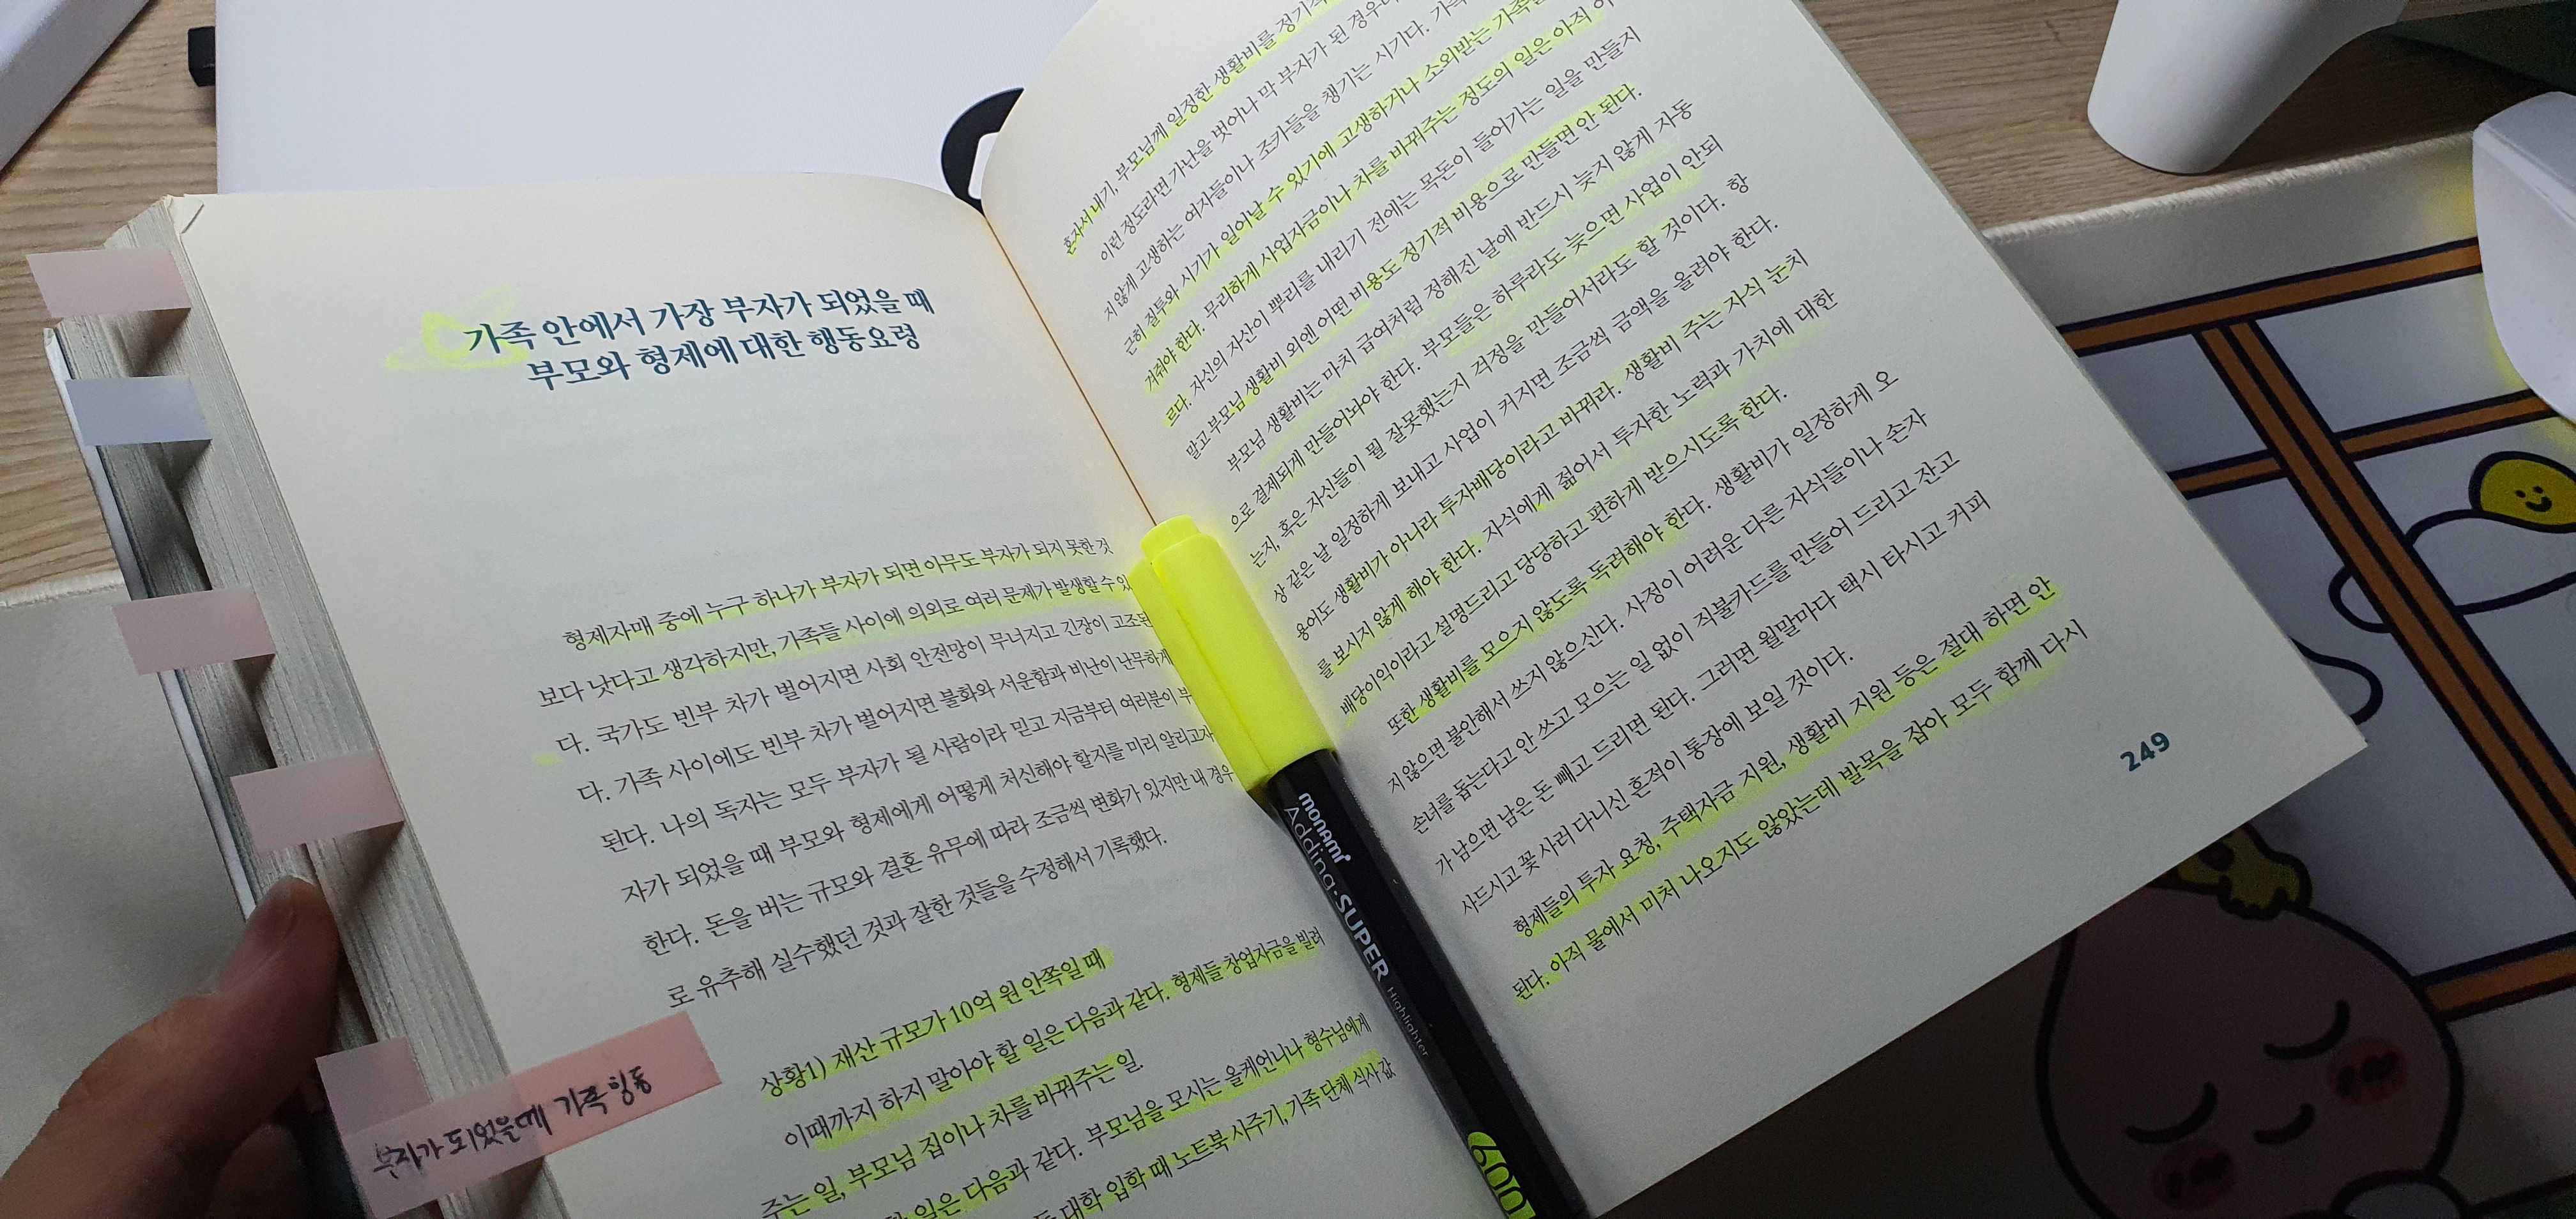 가족 안에서 가장 부자가 되었을 때
부모와 형제에 대한 행동요령
형제자매 중에 누구 하나가 부자가 되면 아무도 부자가 되지 못한 것
보다 낫다고 생각하지만, 가족들 사이에 의외로 여러 문제가 발생할 수 있
다. 국가도 빈부 차가 벌어지면 사회 안전망이 무너지고 긴장이 고조된
다. 가족 사이에도 빈부 차가 벌어지면 불화와 서운함과 비난이 난무하게
된다. 나의 독자는 모두 부자가 될 사람이라 믿고 지금부터 여러분이 부
자가 되었을 때 부모와 형제에게 어떻게 처신해야 할지를 미리 알리고자
한다. 돈을 버는 규모와 결혼 유무에 따라 조금씩 변화가 있지만 내 경우
로 유추해 실수했던 것과 잘한 것들을 수정해서 기록했다.
상황1) 재산 규모가 10억 원 안쪽일 때
이때까지 하지 말아야 할 일은 다음과 같다. 형제들 창업자금을 빌려
주는 일, 부모님 집이나 차를 바꿔주는 일.
일은 다음과 같다. 부모님을 모시는 올케언니나 형수님에게
대학 입학 때 노트북 사주기, 가족 단체 식사 값
부자가 되었을때 가족 행동
혼자서 내기, 부모님께 일정한 생활비를 정기적
이런 정도라면 가난을 벗어나 막 부자가 된 경우
지 않게 고생하는 여자들이나 조카들을 챙기는 시기다.
근히 질투와 시기가 일어날 수 있기에 고생하거나 소외받는
겨줘야 한다. 무리하게 사업자금이나 차를 바꿔주는 정도의 일은 아직 이
르다. 자신의 자산이 뿌리를 내리기 전에는 목돈이 들어가는 일을 만들지
말고 부모님 생활비 외엔 어떤 비용도 정기적 비용으로 만들면 안 된다.
부모님 생활비는 마치 급여처럼 정해진 날에 반드시 늦지 않게 자동
으로 결제되게 만들어놔야 한다. 부모들은 하루라도 늦으면 사업이 안되
는지, 혹은 자신들이 뭘 잘못했는지 걱정을 만들어서라도 할 것이다. 항
상 같은 날 일정하게 보내고 사업이 커지면 조금씩 금액을 올려야 한다.
용어도 생활비가 아니라 투자배당이라고 바꿔라. 생활비 주는 자식 눈치
를 보시지 않게 해야 한다. 자식에게 젊어서 투자한 노력과 가치에 대한
배당이익이라고 설명드리고 당당하고 편하게 받으시도록 한다.
또한 생활비를 모으지 않도록 독려해야 한다. 생활비가 일정하게 오
지 않으면 불안해서 쓰지 않으신다. 사정이 어려운 다른 자식들이나 손자
손녀를 돕는다고 안 쓰고 모으는 일 없이 직불카드를 만들어 드리고 잔고
가 남으면 남은 돈 빼고 드리면 된다. 그러면 월말마다 택시 타시고 커피
사드시고 꽃 사러 다니신 흔적이 통장에 보일 것이다.
형제들의 투자 요청, 주택자금 지원, 생활비 지원 등은 절대 하면 안
된다. 아직 물에서 미처 나오지도 않았는데 발목을 잡아 모두 함께 다시
249
monami
Adding·SUPER Highlighter
600